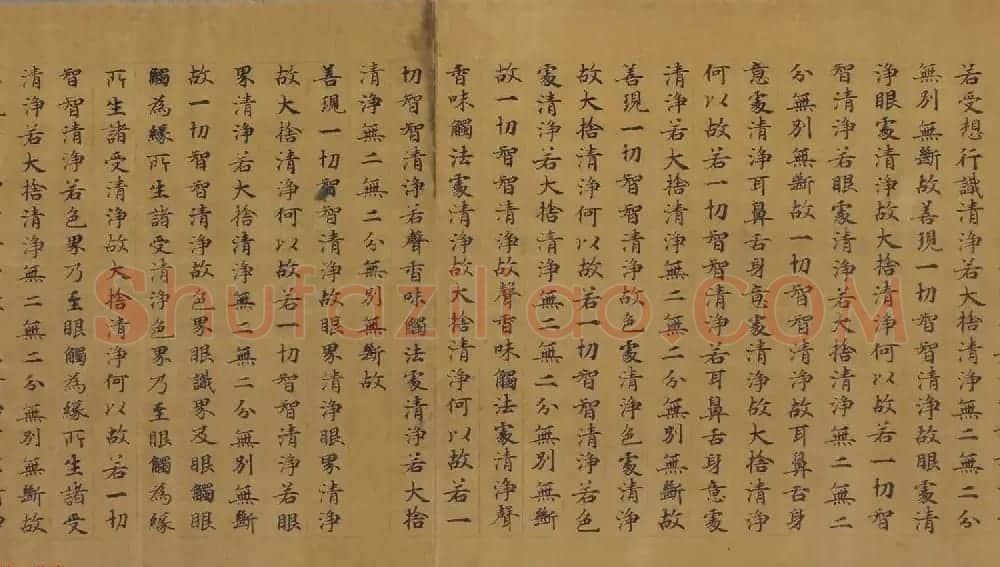 若受想行識清淨若大捨清淨無二無二分
無別無斷故善現一切智智清淨故眼處清
淨眼處清淨故大捨清淨何以故若一切智
智清淨若眼處清淨若大捨清淨無二無二
分無別無斷故一切智智清淨故耳鼻舌身
意處清淨耳鼻舌身意處清淨故大捨清淨
何以故若一切智智清淨若耳鼻舌身意處
清淨若大捨清淨無二無二分無別無斷故
善現一切智智清淨故色處清淨色處清淨
故大捨清淨何以故若一切智智清淨若色
處清淨若大捨清淨無二無二分無別無斷
故一切智智清淨故聲香味觸法處清淨聲
香味觸法處清淨故大捨清淨何以故若一
切智智清淨若聲香味觸法處清淨若大捨
清淨無二無二分無別無斷故
善現一切智智清淨故眼界清淨眼界清淨
故大捨清淨何以故若一切智智清淨若眼
界清淨若大捨清淨無二無二分無別無斷
故一切智智清淨故色界眼識界及眼觸眼
觸為緣所生諸受清淨色界乃至眼觸為緣
所生諸受清淨故大捨清淨何以故若一切
智智清淨若色界乃至眼觸為緣所生諸受
清淨若大捨清淨無二無二分無別無斷故
Shufaziliao.COM